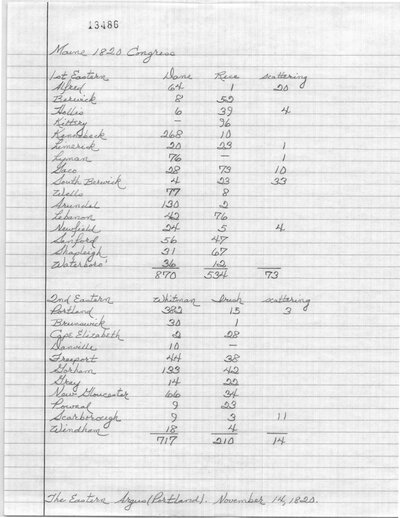 13486
Maine 1820 Congress
1st Eastern Dane Rice scattering
Alfred 64 1 20
Berwick 8 52
Hollis 6 39 4
Kittery — 96
Kennebeck 268 10
Limerick 20 23 1
Lyman 76 — 1
Saco 28 73 10
South Berwick 4 23 33
Wells 77 8
Arundel 130 2
Lebanon 42 76
Newfield 24 5 4
Sanford 56 47
Shapleigh 31 67
Waterboro' 36 12
870 534 73
2nd Eastern Whitman Irish scattering
Portland 382 15 3
Brunswick 30 1
Cape Elizabeth 2 28
Danville 10 —
Freeport 44 38
Gorham 133 42
Gray 14 22
New Gloucester 66 34
Pownal 9 23
Scarborough 9 3 11
Windham 18 4
717 210 14
The Eastern Argus (Portland). November 14, 1820.